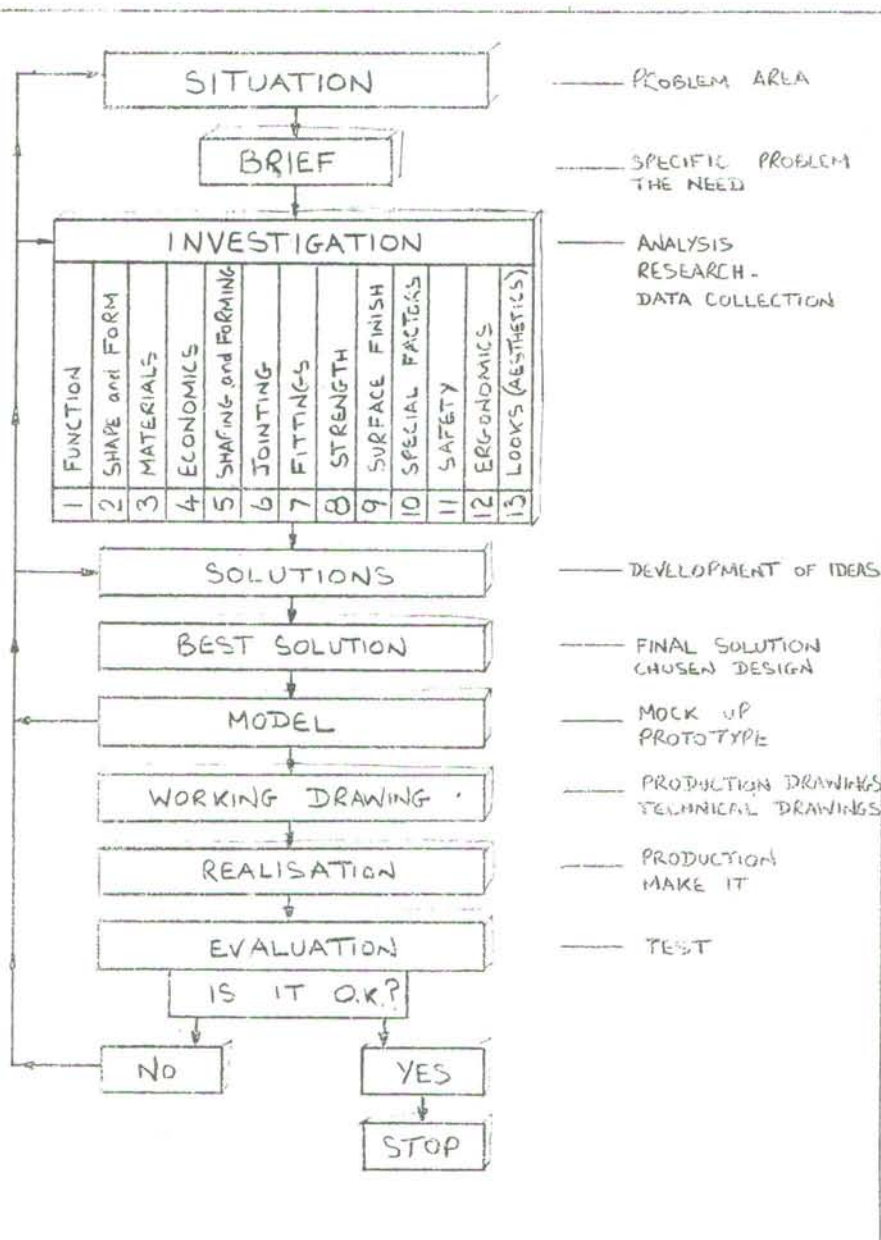 SITUATION
PROBLEM AREA
BRIEF
SPECIFIC PROBLEM
THE NEED
INVESTIGATION
ANALYSIS
RESEARCH -
DATA COLLECTION
1 FUNCTION
2 SHAPE and FORM
3 MATERIALS
4 ECONOMICS
5 SHAPING and FORMING
6 JOINTING
7 FITTINGS
8 STRENGTH
9 SURFACE FINISH
10 SPECIAL FACTORS
11 SAFETY
12 ERGONOMICS
13 LOOKS (AESTHETICS)
SOLUTIONS
DEVELOPMENT OF IDEAS
BEST SOLUTION
FINAL SOLUTION
CHOSEN DESIGN
MODEL
MOCK UP
PROTOTYPE
WORKING DRAWING .
PRODUCTION DRAWINGS
TECHNICAL DRAWINGS
REALISATION
PRODUCTION
MAKE IT
EVALUATION
TEST
IS IT O.K.?
NO
YES
STOP